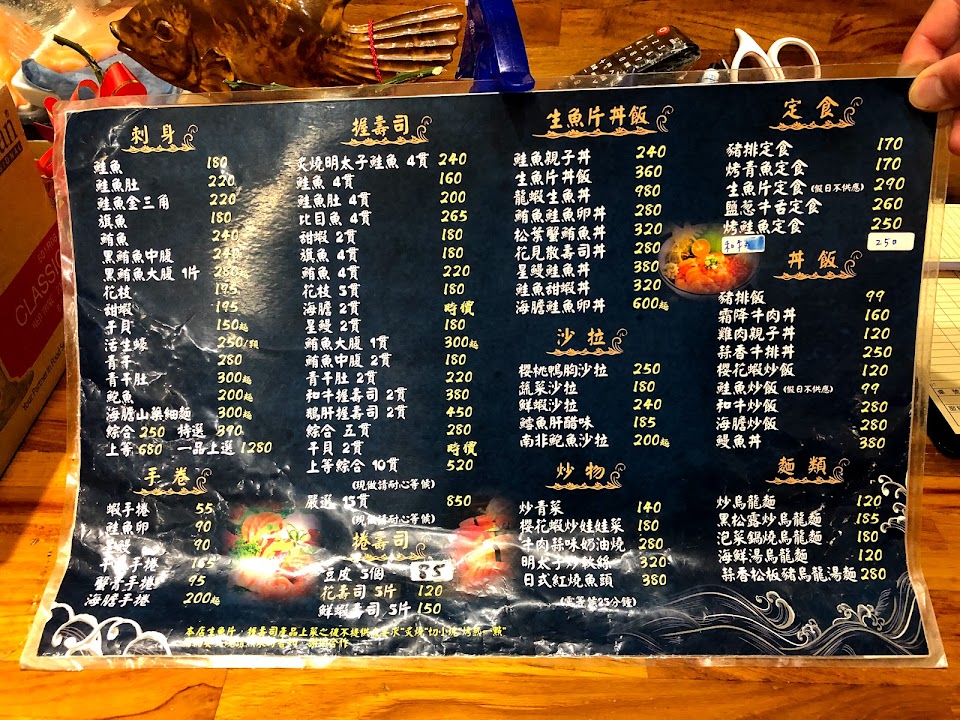 刺身
鮭魚 180
鮭魚肚 220
鮭魚金三角 220
旗魚 180
鮪魚 240
黑鮪魚中腹
黑鮪魚大腹 1片
花枝 195
甜蝦 195
干貝 150起
活生蠔 250/顆
青干 280
青干肚 300起
鮑魚 200起
海膽山藥細麵 300起
綜合 250 特選 390
上等 680 一品上選 1280
手卷
蝦手捲 55
鮭魚卵 90
90
手捲
蟹膏手捲 95
海膽手捲 200起
握壽司
炙燒明太子鮭魚 4貫 240
鮭魚 4貫 160
鮭魚肚 4貫 200
比目魚 4貫 265
甜蝦 2貫 180
旗魚 4貫 180
鮪魚 4貫 220
花枝 3貫 180
海膽 2貫 時價
星鰻 2貫 180
鮪魚大腹 1貫 300起
鮪魚中腹 2貫 180
青干肚 2貫 220
和牛握壽司 2貫 380
鵝肝握壽司 2貫 450
綜合 五貫 280
干貝 2貫 時價
上等綜合 10貫 520
(現做請耐心等候)
嚴選 15貫 850
(現做請耐心等候)
捲壽司
豆皮 3個 85
花壽司 5片 120
鮮蝦壽司 5片 150
生魚片丼飯
鮭魚親子丼 240
生魚片丼飯 360
龍蝦生魚丼 980
鮪魚鮭魚卵丼 280
松葉蟹鮪魚丼 320
花見散壽司丼 280
星鰻鮭魚丼 380
鮭魚甜蝦丼 320
海膽鮭魚卵丼 600起
沙拉
櫻桃鴨胸沙拉 250
蔬菜沙拉 180
鮮蝦沙拉 240
鱈魚肝醋味 185
南非鮑魚沙拉 200起
炒物
炒青菜 140
櫻花蝦炒娃娃菜 180
牛肉蒜味奶油燒 280
明太子炒軟絲 320
日式紅燒魚頭 380
(需等候25分鐘)
定食
豬排定食 170
烤青魚定食 170
生魚片定食 (假日不供應) 290
鹽蔥牛舌定食 260
烤鮭魚定食 250
和牛 250
丼飯
豬排飯 99
霜降牛肉丼 160
雞肉親子丼 120
蒜香牛排丼 250
櫻花蝦炒飯 120
鮭魚炒飯 (假日不供應) 99
和牛炒飯 280
海膽炒飯 280
鰻魚丼 380
麵類
炒烏龍麵 120
黑松露炒烏龍麵 185
泡菜鍋燒烏龍麵 180
海鮮湯烏龍麵 120
蒜香松板豬烏龍湯麵 280
本店生魚片，握壽司產品上菜之後不提供
CLASSI